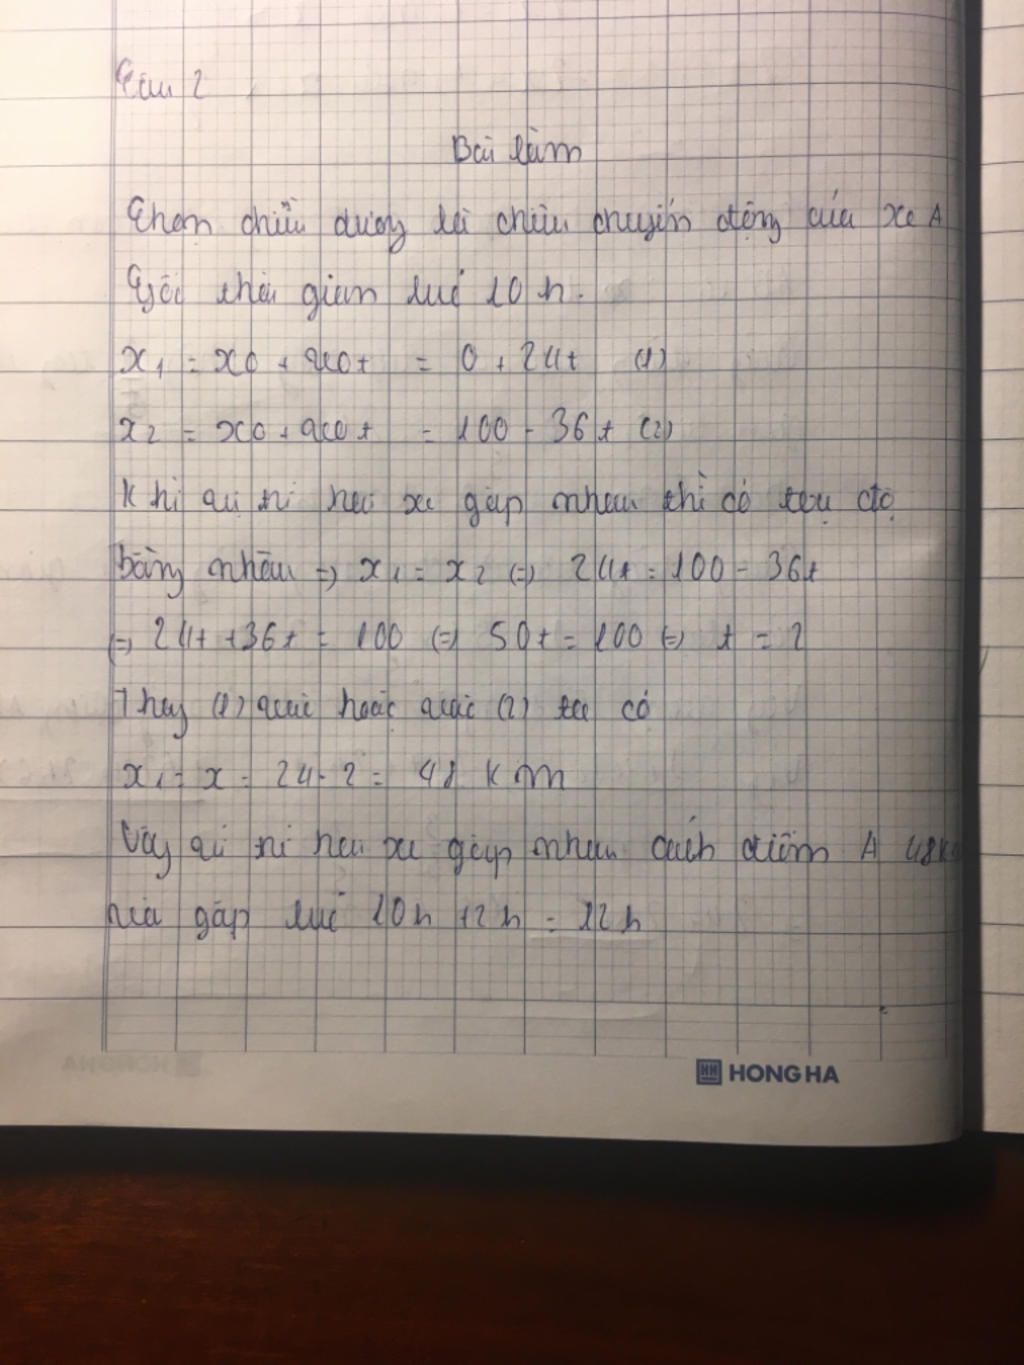 Câu 2
Bài làm
Chọn chiều dương là chiều chuyển động của xe A
Gốc thời gian lúc 10 h.
x1 = x0 + t = 0 + 24t (1)
x2 = x0 + t = 100 - 36t (2)
Khi hai xe gặp nhau thì có toạ độ
bằng nhau => x1 = x2 (=) 24t = 100 - 36t
(=) 24t + 36t = 100 (=) 50t = 100 (=) t = 2
Thay (1) hoặc (2) ta có
x1 = x = 24 - 2 = 48 km
Vậy hai xe gặp nhau cách điểm A 48k
và gặp lúc 10h + 2h = 12h
HONG HA